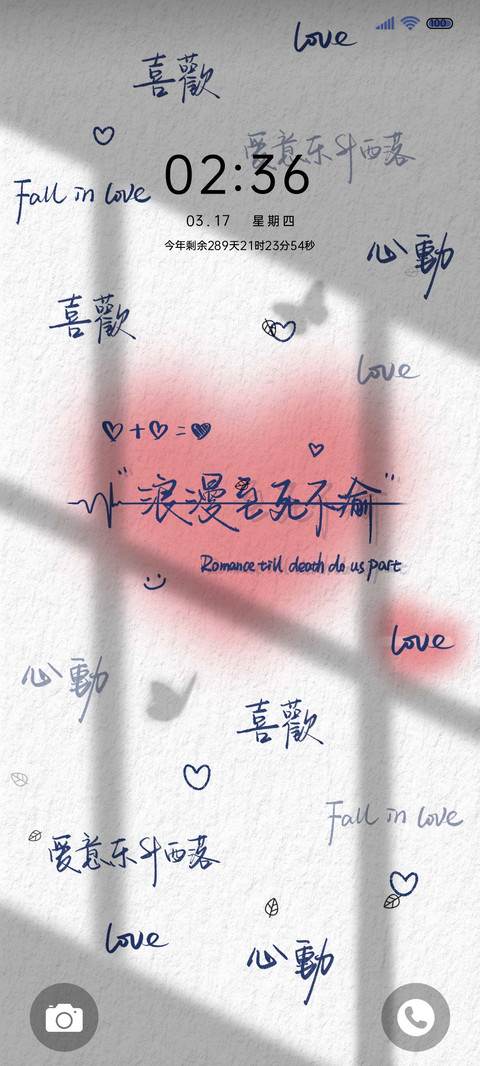 love
100
喜歡
爱意东斗西落
02:36
Fall in love
03.17 星期四
今年剩余289天21时23分54秒
心動
喜歡
love
+ =
"浪漫至死不渝"
Romance till death do us part
love
心動
喜歡
Fall in love
爱意东斗西落
love
心動